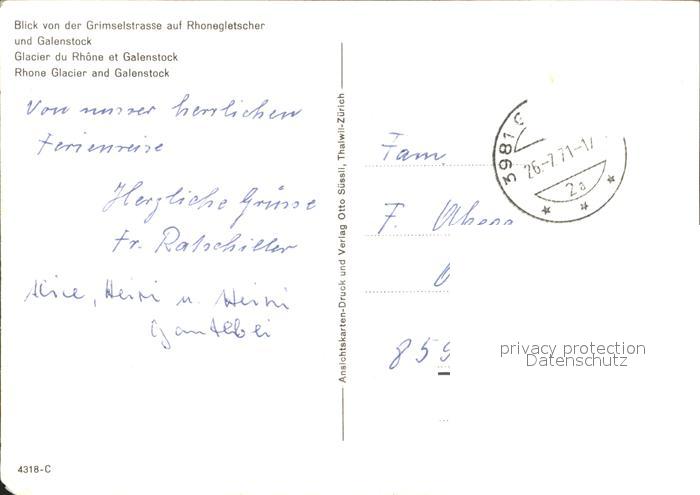 Blick von der Grimselstrasse auf Rhonegletscher
und Galenstock
Glacier du Rhône et Galenstock
Rhone Glacier and Galenstock
Von unsrer herrlichen
Ferienreise
Herzliche Grüsse
Fr. Ratschiller
Alice, Heiri u. Heini
4318-C
Ansichtskarten-Druck und Verlag Otto Süssli, Thalwil-Zürich
3981 G
26.-7.71-17
2a
Fam
F.
859
privacy protection
Datenschutz